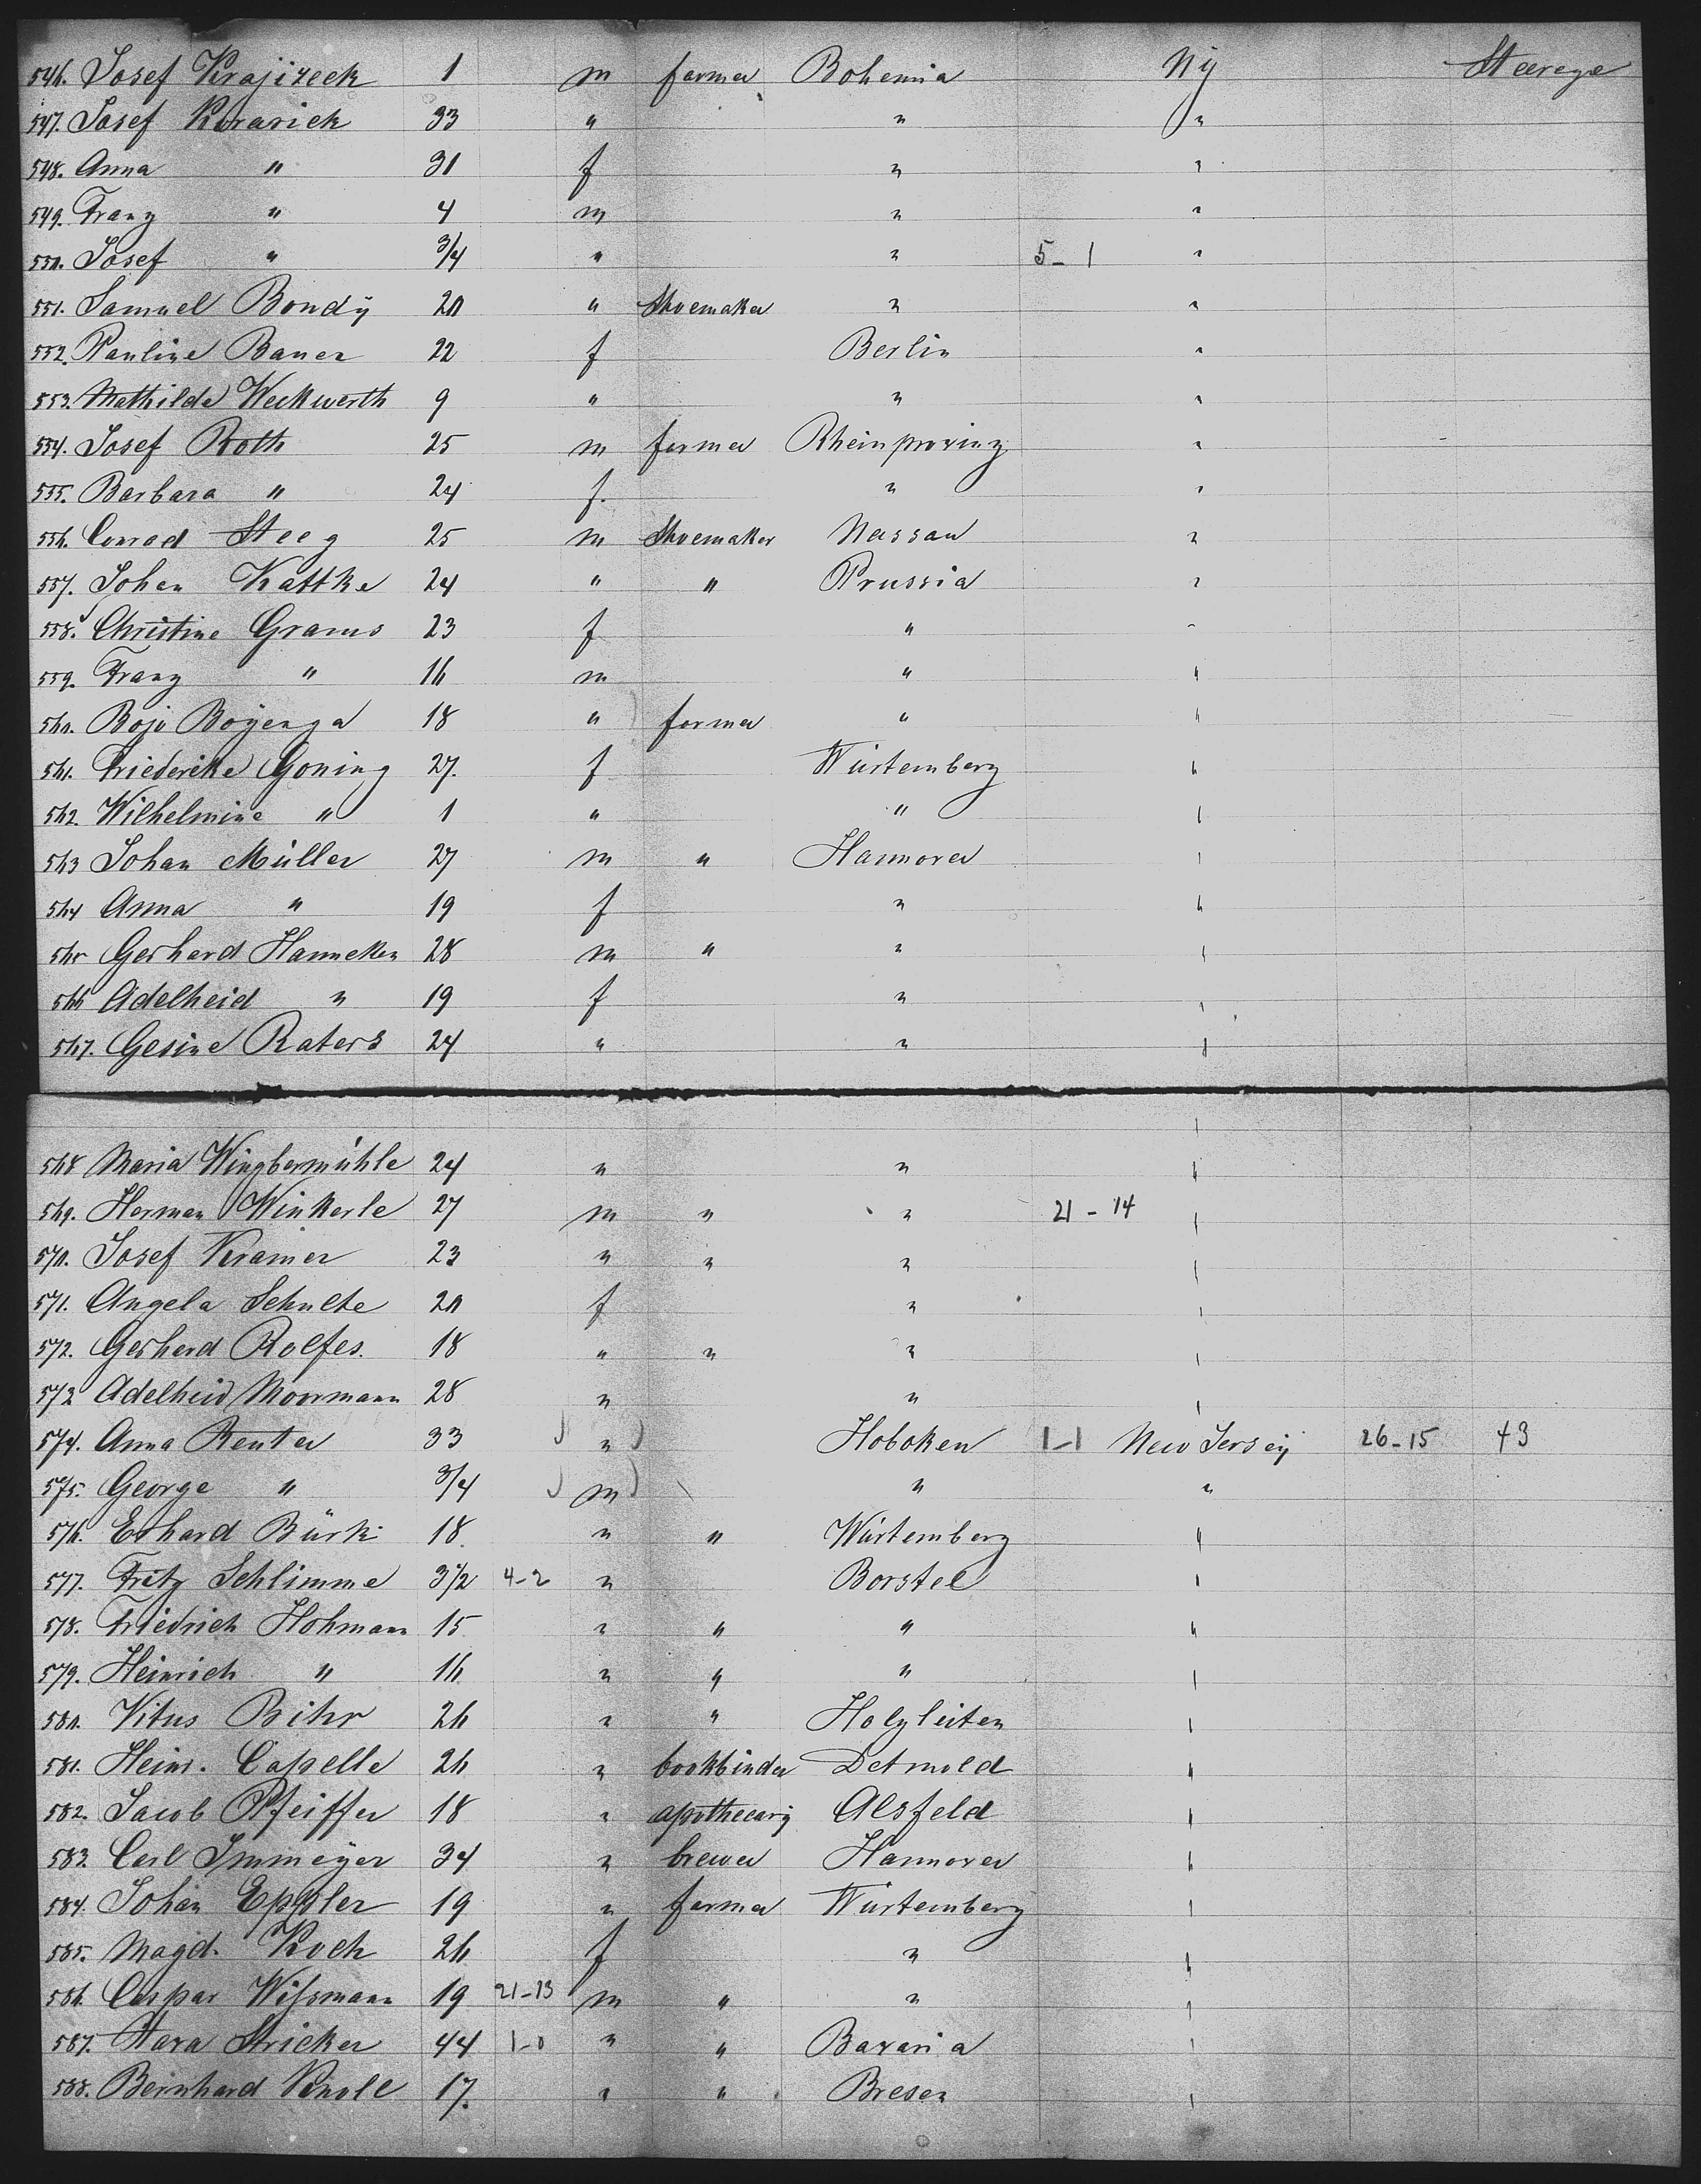 546. Josef Krajizeck 1 m farmer Bohemia Ny Steerage
547. Josef Kovarick 33 " " "
548. Anna " 31 f " "
549. Franz " 4 m " "
550. Josef " 3/4 " " 5-1 "
551. Samuel Bondy 20 " Shoemaker " "
552. Pauline Bauer 22 f Berlin "
553. Mathilde Weckwerth 9 " " "
554. Josef Roth 25 m farmer Rheinprovinz "
555. Barbara " 24 f. " "
556. Conrad Steeg 25 m Shoemaker Nassau "
557. Johan Kattke 24 " " Prussia "
558. Christine Grams 23 f " "
559. Franz " 16 m " "
560. Bojo Boyenga 18 " farmer " "
561. Friedericke Goning 27. f Würtemberg "
562. Wilhelmine " 1 " " "
563 Johan Müller 27 m " Hannover "
564 Anna " 19 f " "
565 Gerhard Hanneken 28 m " " "
566 Adelheid " 19 f " "
567. Gesine Raters 24 " " "
568 Maria Wingbermühle 24 " " "
569. Herman Winkerle 27 m " " 21-14 "
570. Josef Kramer 23 " " " "
571. Angela Schulte 20 f " "
572. Gerhard Rolfes. 18 " " " "
573 Adelheid Moormann 28 " " "
574. Anna Reuter 33 " Hoboken 1-1 New Jersey 26-15 43
575. George " 3/4 m " "
576. Erhard Bürk 18. " " Würtemberg "
577. Fritz Schlimme 3 1/2 4-2 " Borstel "
578. Friedrich Hohmann 15 " " " "
579. Heinrich " 16 " " " "
580. Vitus Bihr 26 " " Holzleiten "
581. Heinr. Capelle 26 " bookbinder Detmold "
582. Jacob Pfeiffer 18 " apothecary Alsfeld "
583. Carl Immeyer 34 " brewer Hannover "
584. Johan Eppler 19 " farmer Würtemberg "
585. Magd. Koch 26 f " "
586. Caspar Wissmann 19 21-13 m " " "
587. Stricker 44 1-0 " " Bavaria "
588. Bernhard Knoll 17. " " Bresen "